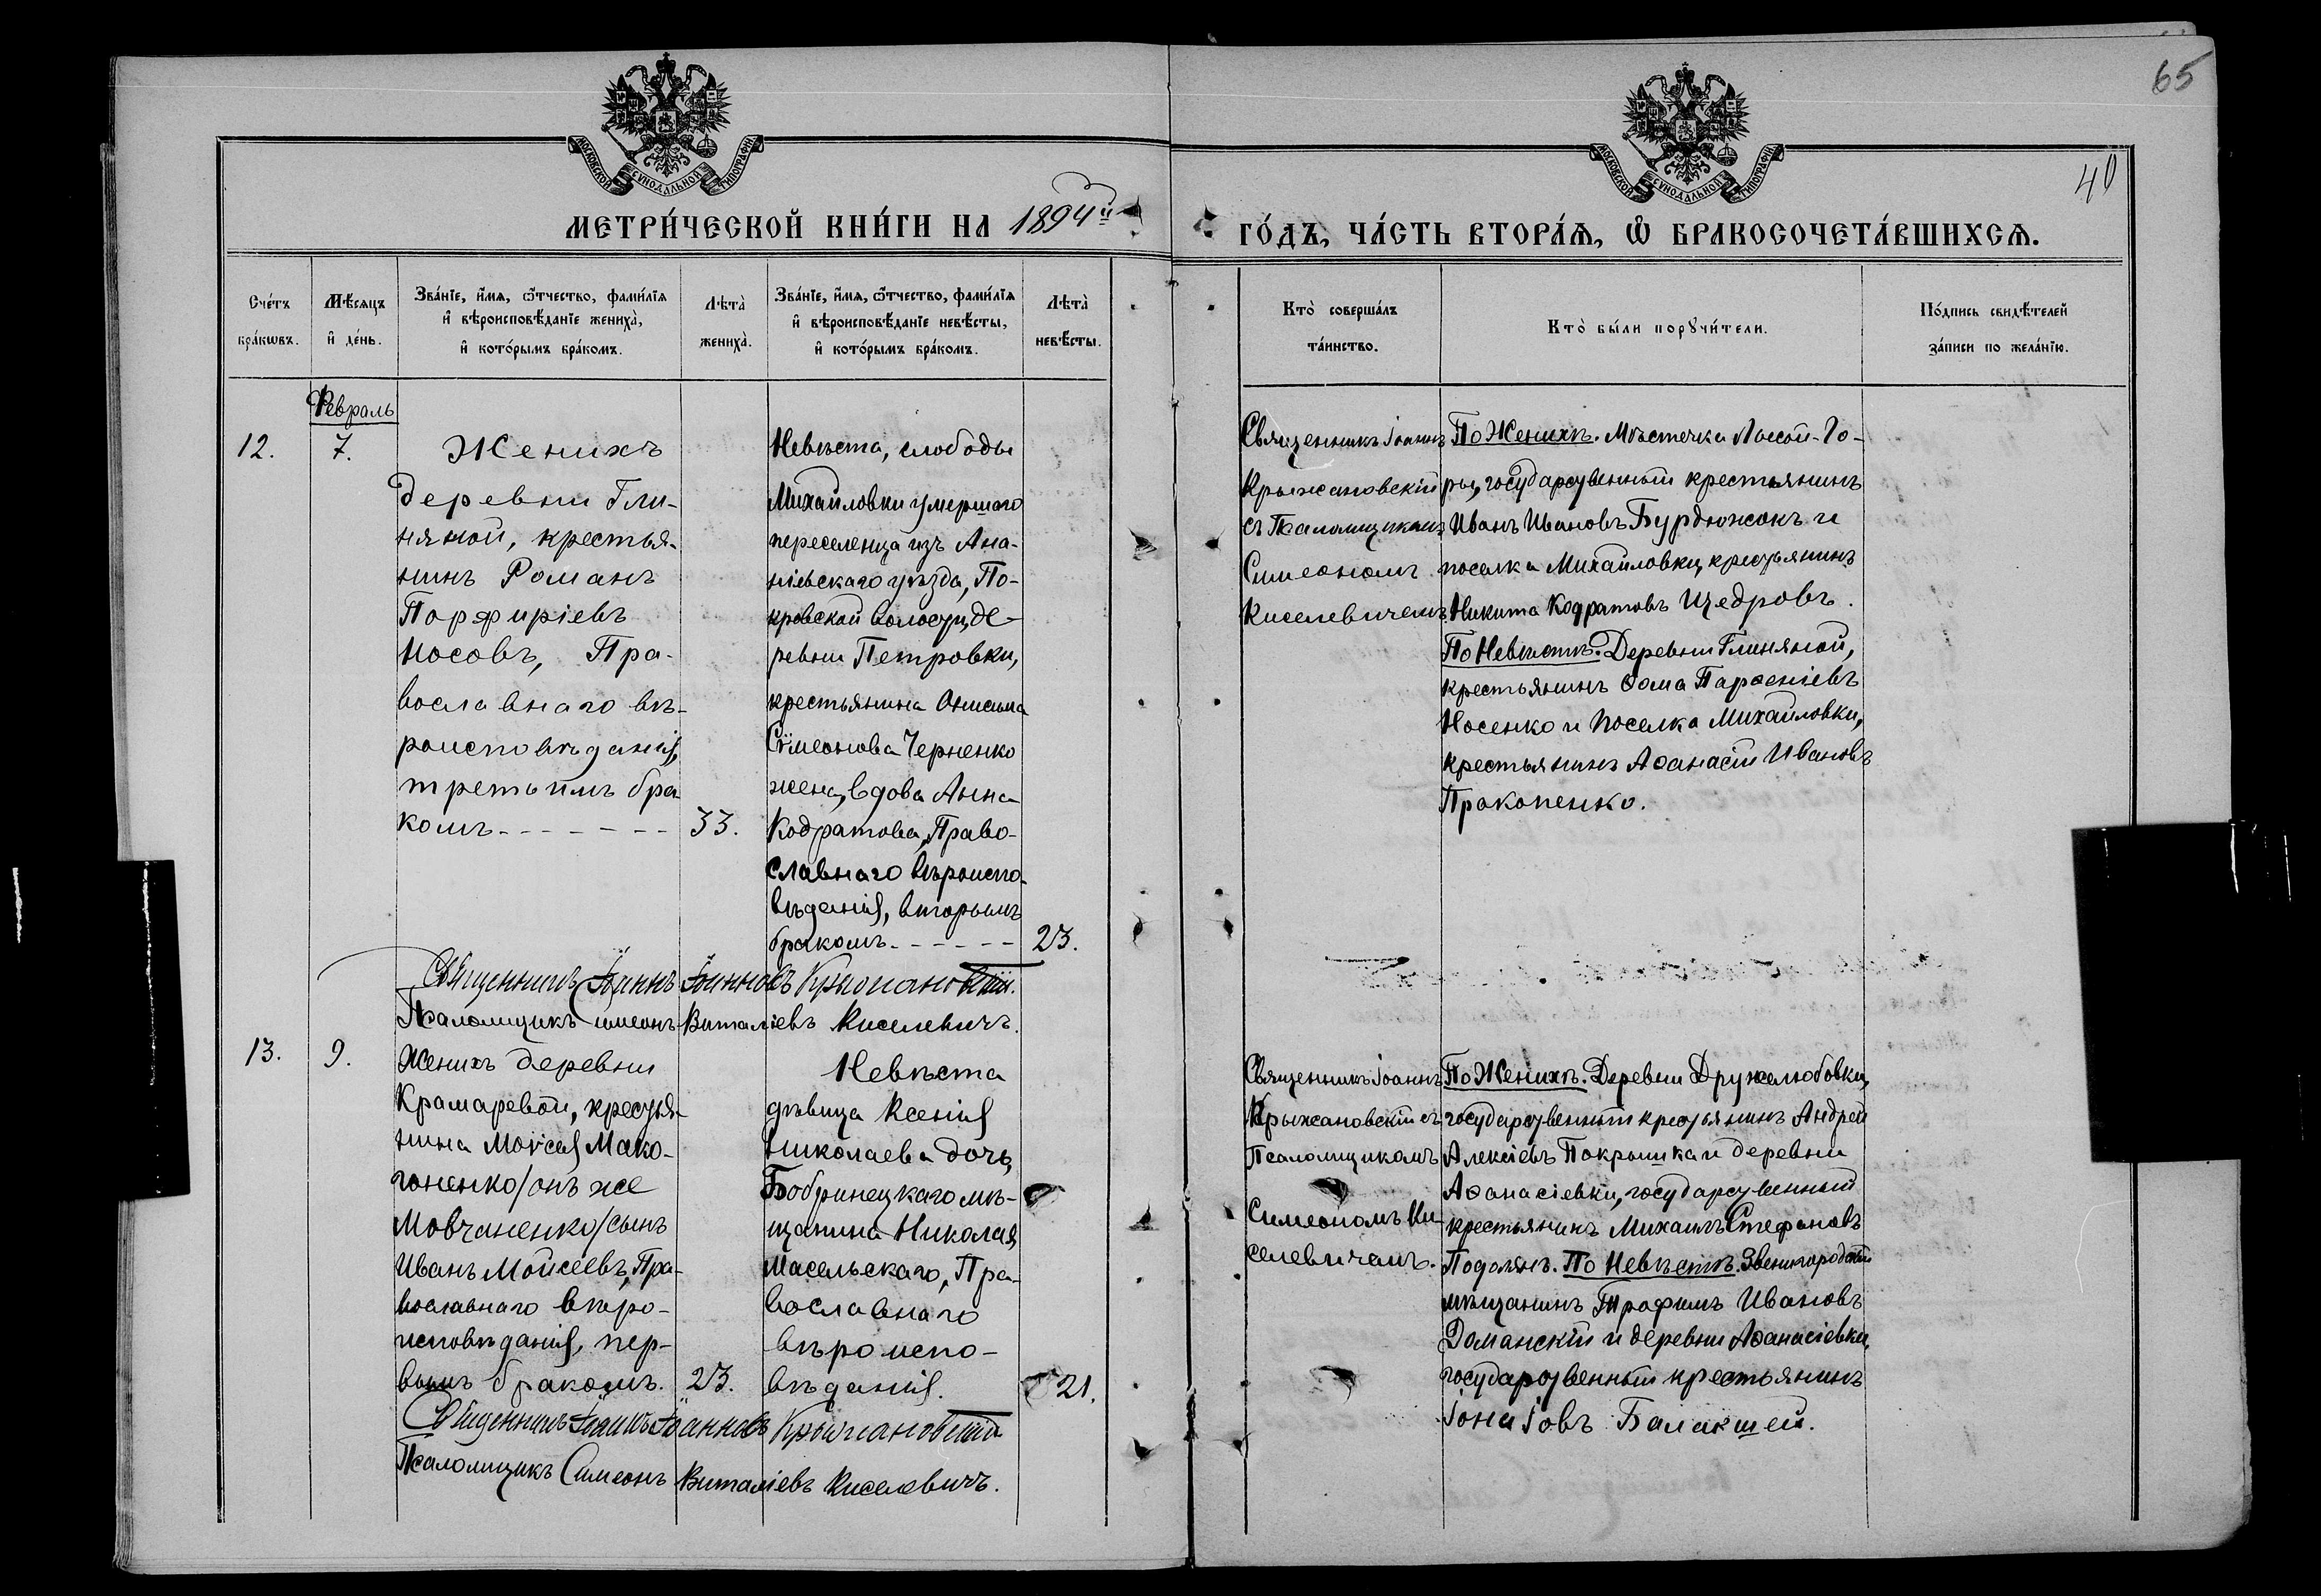 65
40
МОСКОВСКОЙ СѴНОДАЛЬНОЙ ТИПОГРАФІИ
МОСКОВСКОЙ СѴНОДАЛЬНОЙ ТИПОГРАФІИ
МЕТРИ́ЧЕСКОЙ КНИ́ГИ НА 1894й
ГО́ДЪ, ЧА́СТЬ ВТОРА́Ѧ, Ѽ БРАКОСОЧЕТА́ВШИХСѦ.
Сче́тъ
бра́кѡвъ.
Мѣ́сяцъ
и҆ де́нь.
Зва́нїе, и҆́мѧ, ѻ҆́тчество, фами́лїѧ
и҆ вѣроисповѣ́данїе жениха̀,
и҆ кото́рымъ бра́комъ.
Лѣта̀
жениха̀.
Зва́нїе, и҆́мѧ, ѻ҆́тчество, фами́лїѧ
и҆ вѣроисповѣ́данїе невѣ́сты,
и҆ кото́рымъ бра́комъ.
Лѣта̀
невѣ́сты.
Кто̀ соверша́лъ
та́инство.
Кто̀ бы́ли порꙋчи́тели.
По́дпись свидѣ́телей
за́писи по жела́нїю.
Февраль
12.
7.
Женихъ
деревни Гли-
няной, крестья-
нинъ Романъ
Порфиріевъ
Носовъ, Пра-
вославнаго вѣ-
роисповѣданія,
третьимъ бра-
комъ - - - - - - -
33.
Невѣста, слободы
Михайловки умершаго
переселенца изъ Ана-
ніевскаго уѣзда, По-
кровской волости, де-
ревни Петровки,
крестьянина Онисима
Сѵмеонова Черненко
жена, вдова Анна
Кодратова, Право-
славнаго вѣроиспо-
вѣданія, вторымъ
бракомъ - - - - - -
23.
Священникъ Іоаннъ
Крыжановскій
съ Псаломщикомъ
Симеономъ
Киселевичемъ.
По Женихѣ. Мѣстечка Лысой-Го-
ры, государственный крестьянинъ
Иванъ Ивановъ Бурдюжокъ и
поселка Михайловки, крестьянинъ
Никита Кодратовъ Щедровъ.
По Невѣстѣ. Деревни Глиняной,
крестьянинъ Ѳома Парѳеніевъ
Носенко и поселка Михайловки,
крестьянинъ Аѳанасій Ивановъ
Прокопенко.
Священникъ Іоаннъ Іоанновъ Крыжановскій.
Псаломщикъ Симеонъ Виталіевъ Киселевичъ.
13.
9.
Женихъ деревни
Крамаревой, крестья-
нина Моѵсея Мако-
гоненко /онъ же
Мовчаненко/ сынъ
Иванъ Мойсеевъ, Пра-
вославнаго вѣро-
исповѣданія, пер-
вымъ бракомъ.
23.
Невѣста
дѣвица Ксенія
Николаева дочь,
Бобринецкаго мѣ-
щанина Николая
Масельскаго, Пра-
вославнаго
вѣроиспо-
вѣданія.
21.
Священникъ Іоаннъ
Крыжановскій съ
Псаломщикомъ
Симеономъ Ки-
селевичемъ.
По Женихѣ. Деревни Дружелюбовки,
государственный крестьянинъ Андрей
Алексіевъ Покрышка и деревни
Аѳанасіевки, государственный
крестьянинъ Михаилъ Стефановъ
Подолянъ. По Невѣстѣ. Звенигородскій
мѣщанинъ Трофимъ Ивановъ
Доманскій и деревни Аѳанасіевки,
государственный крестьянинъ
Іона Іовъ Балакшей.
Священникъ Іоаннъ Іоанновъ Крыжановскій
Псаломщикъ Симеонъ Виталіевъ Киселевичъ.